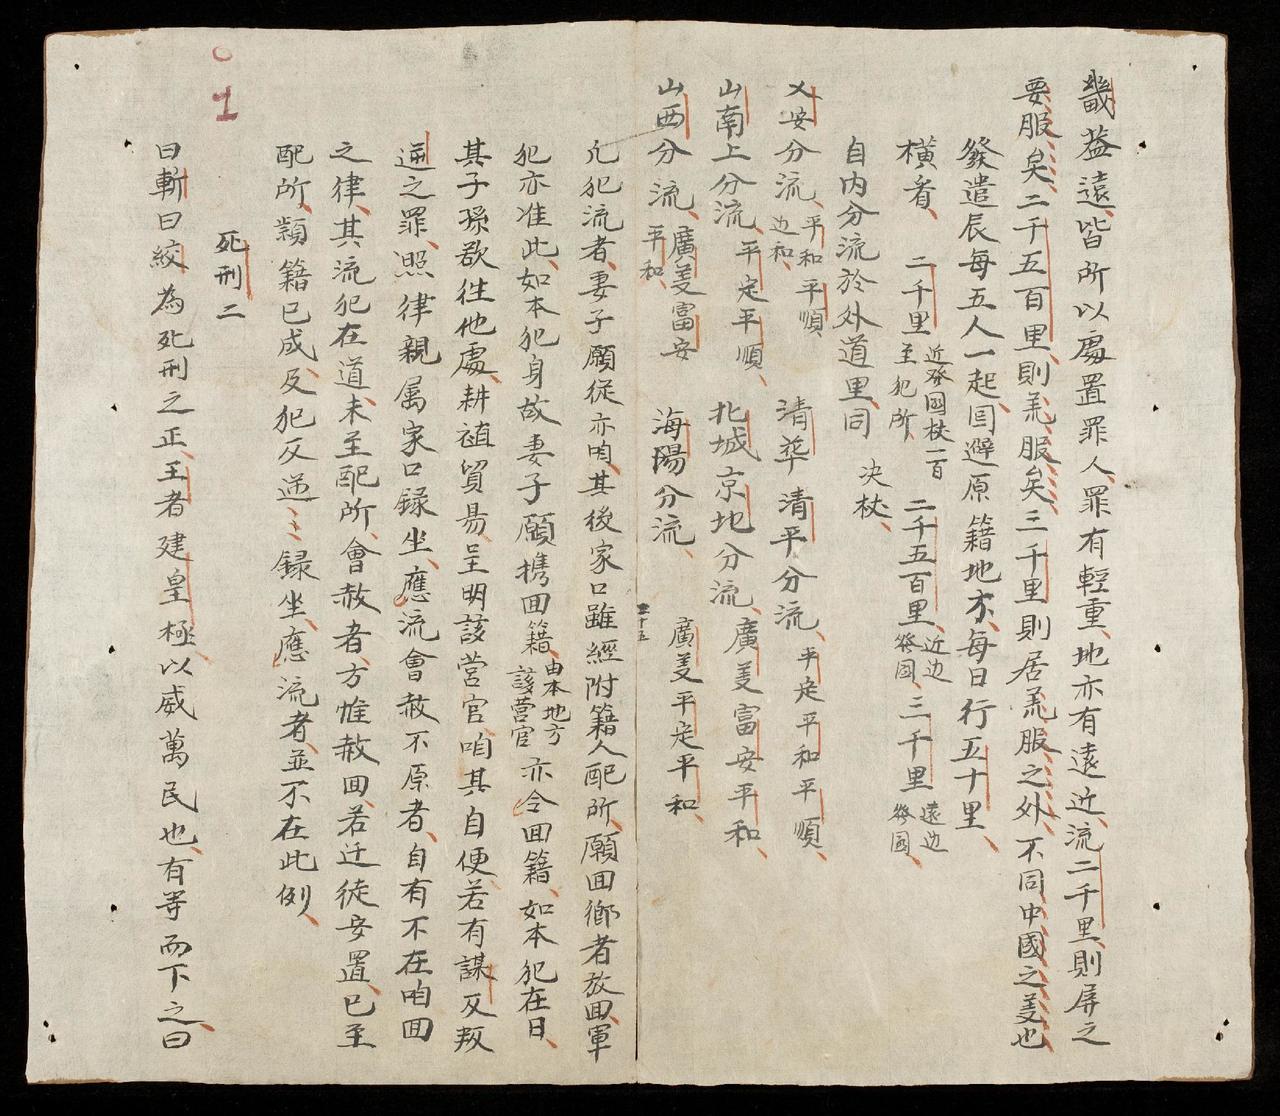 畿益遠、皆所以處置罪人、罪有輕重、地亦有遠近、流二千里、則屏之
要服矣、二千五百里、則羌服矣、三千里則居羌服之外、不同中國之羙也
發遣辰每五人一起、囯避原籍地方、每日行五十里、
橫看、二千里近發國杖一百至犯所、二千五百里、近边發國、三千里遠边發國、
自内分流於外道里同、決杖、
乂安分流、平和平順边和、清華清平分流、平定平和平順、
山南上分流、平定平順、北城京地分流、廣羙富安平和、
山西分流、廣羙富安平和、海陽分流、廣羙平定平和、
三十五
凢犯流者、妻子願從亦咱、其後家口雖經附籍人配所、願囬鄉者放囬、軍
犯亦准此、如本犯身故、妻子願携囬籍、由本地方該营官亦令囬籍、如本犯在日、
其子孫欲徃他處、耕植貿易、呈明該营官、咱其自便、若有謀反叛
逆之罪、照律親属家口錄坐、應流會赦不原者、自有不在咱囬
之律、其流犯在道、未至配所、會赦者、方惟赦囬、若迁徒安置、已至
配所、類籍已成、及犯反逆、〻錄坐、應流者、並不在此例、
死刑二
曰斬曰絞為死刑之正、王者建皇極、以威萬民也、有等而下之、曰
1